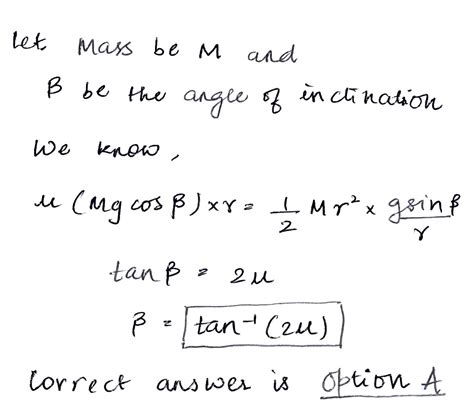 Let Mass be M and
β be the angle of inclination
We know,
μ (Mg cos β) × r = 1/2 Mr² × g sin β / r
tan β = 2μ
β = tan⁻¹ (2μ)
Correct answer is option A